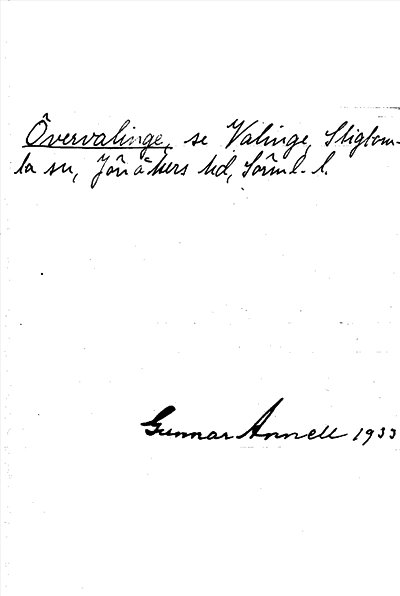 Övervalinge, se Valinge, Stigtom-
ta sn, Jönåkers hd, Sörml. l.
Gunnar Annell 1933